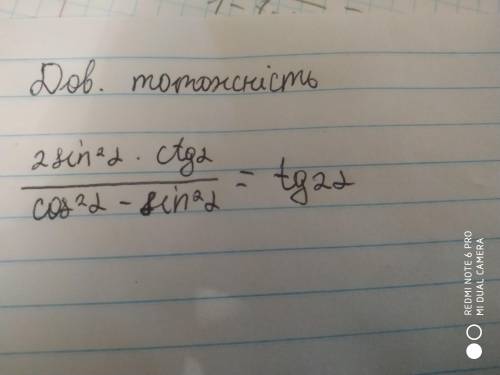 Дов. тотожність
2sin²α · ctgα
cos²α - sin²α
= tg2α
REDMI NOTE 6 PRO
MI DUAL CAMERA